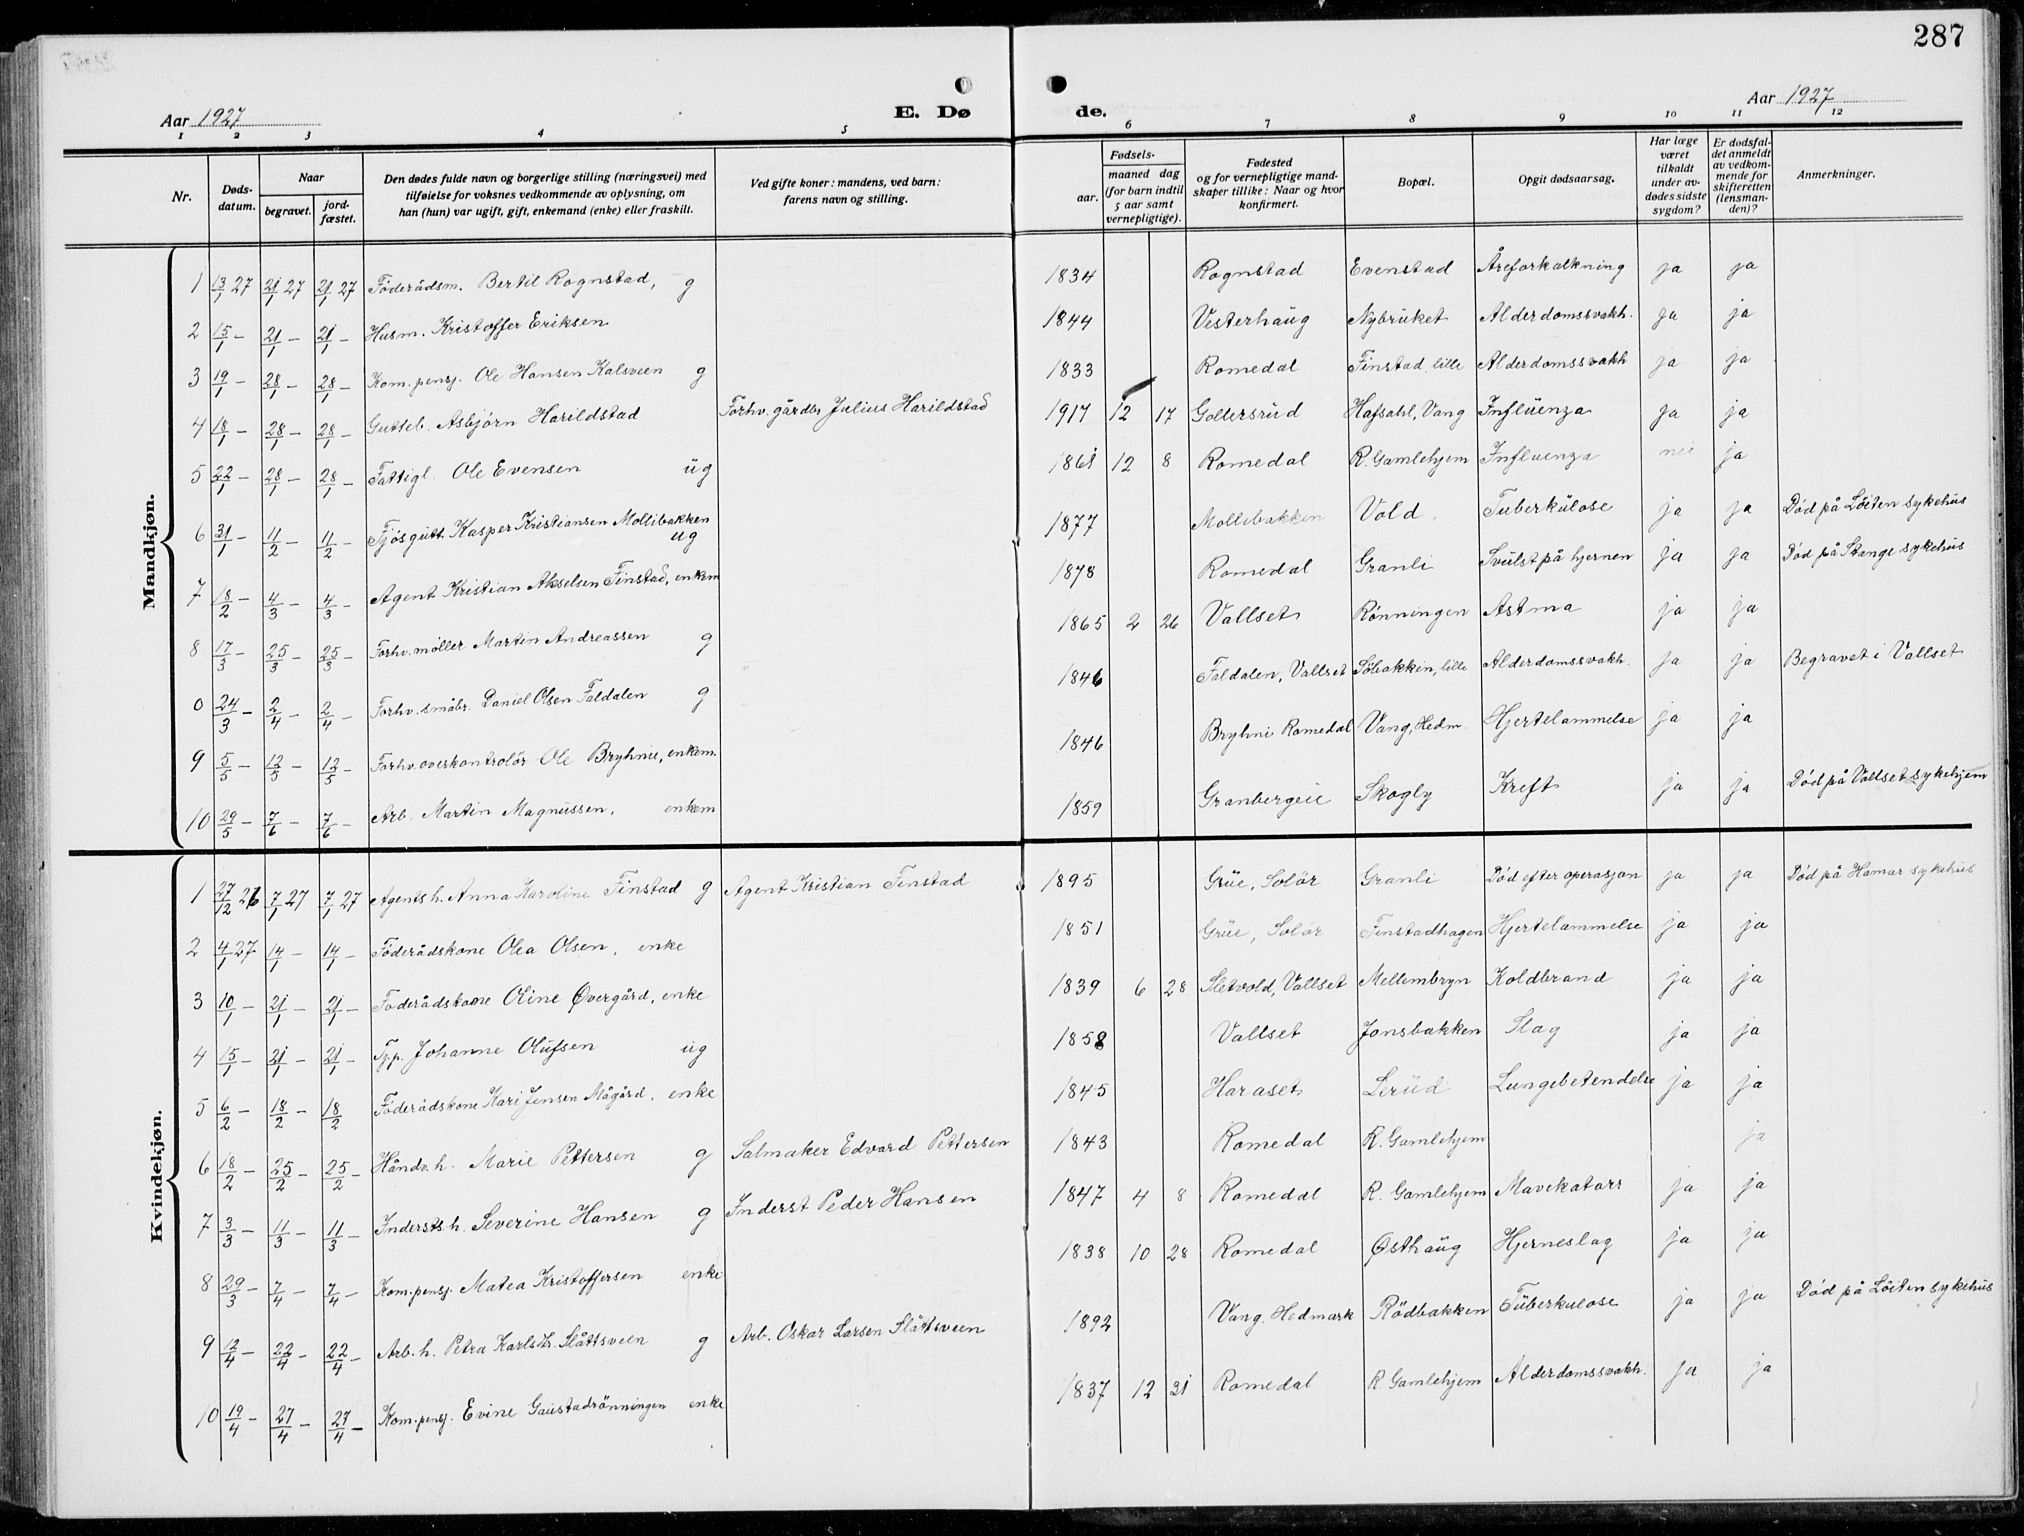 287
Aar 1927
E. Dø
de.
Aar 1927
1 2 3 4 5 6 7 8 9 10 11 12
Nr.
Døds-
datum.
Naar
begravet.
jord-
fæstet.
Den dødes fulde navn og borgerlige stilling (næringsvei) med
tilføielse for voksnes vedkommende av oplysning, om
han (hun) var ugift, gift, enkemand (enke) eller fraskilt.
Ved gifte koner: mandens, ved barn:
farens navn og stilling.
Fødsels-
aar.
maaned dag
(for barn indtil
5 aar samt
vernepligtige).
Fødested
og for vernepligtige mand-
skaper tillike: Naar og hvor
konfirmert.
Bopæl.
Opgit dødsaarsag.
Har læge
været
tilkaldt
under av-
dødes sidste
sygdom?
Er dødsfal-
det anmeldt
av vedkom-
mende for
skifteretten
(lensman-
den)?
Anmerkninger.
Mandkjøn.
1 13/1 27 21/1 27 21/1 27 Föderådsm. Bertil Rognstad, g 1834 Rognstad Evenstad Åreforkalkning ja ja
2 15/1 – 21/1 – 21/1 – Husm. Kristoffer Eriksen 1844 Vesterhaug Nybruket Alderdomssvakh. ja ja
3 19/1 – 28/1 – 28/1 – Kom. pensj. Ole Hansen Kalsveen g 1833 Romedal Finstad, lille Alderdomssvakh ja ja
4 18/1 – 28/1 – 28/1 – Gutteb. Asbjörn Harildstad Forhv. gårdbr Julius Harildstad 1917 12 17 Gollersrud Hafsahl, Vang Influenza ja ja
5 22/1 – 28/1 – 28/1 – Fattigl. Ole Evensen ug 1861 12 8 Romedal R. Gamlehjem Influenza nei ja
6 31/1 – 11/2 – 11/2 – Fjösgutt Kasper Kristiansen Mollibakken ug 1877 Mollibakken Vold Tuberkulose ja ja Död på Löiten sykehus
7 18/2 – 4/3 – 4/3 – Agent Kristian Akselsen Finstad, enkem 1878 Romedal Granli Svulst på hjernen ja ja Död på Stange sykehus
8 17/3 – 25/3 – 25/3 – Forhv. möller Martin Andreassen g 1865 2 26 Vallset Rönningen Astma ja ja
0 24/3 – 2/4 – 2/4 – Forhv. småbr. Daniel Olsen Faldalen g 1846 Faldalen, Vallset Söbakken, lille Alderdomssvakh. ja ja Begravet i Vallset
9 5/5 – 12/5 – 12/5 – Forhv. overkontrolör Ole Bryhni, enkem. 1846 Bryhni Romedal Vang, Hedm. Hjertelammelse ja ja
10 29/5 – 7/6 – 7/6 – Arb. Martin Magnussen, enkem 1859 Granbergeie Skogly Kreft ja ja Död på Vallset sykehjem
Kvindekjøn.
1 27/12 26 7/1 27 7/1 27 Agents h. Anna Karoline Finstad g Agent Kristian Finstad 1895 Grue, Solör Granli Död efter operasjon ja ja Död på Hamar sykehus
2 4/1 27 14/1 – 14/1 – Föderådskone Olea Olsen, enke 1851 Grue, Solör Finstadhagen Hjertelammelse ja ja
3 10/1 – 21/1 – 21/1 – Föderådskone Oline Övergård, enke 1839 6 28 Sletvold, Vallset Mellembryn Koldbrand ja ja
4 15/1 – 21/1 – 21/1 – Tj.p. Johanne Olufsen ug 1858 Vallset Jonsbakken Slag ja ja
5 6/2 – 18/2 – 18/2 Föderådskone Kari Jensen Mågård, enke 1845 Haraset Lerud Lungebetendelse ja ja
6 18/2 – 25/2 – 25/2 – Håndv. h. Marie Pettersen g Salmaker Edvard Pettersen 1843 Romedal R. Gamlehjem ja
7 3/3 – 11/3 – 11/3 – Inderstsh. Severine Hansen g Inderst Peder Hansen 1847 4 8 Romedal R. Gamlehjem Mavekatarr ja ja
8 29/3 – 7/4 – 7/4 – Kom. pensj. Matea Kristoffersen enke 1838 10 28 Romedal Østhaug Hjerneslag ja ja
9 12/4 – 22/4 – 22/4 – Arb. h. Petra Karlsdtr. Slåttsveen g Arb. Oskar Larsen Slåttsveen 1892 Vang, Hedmark Rödbakken Tuberkulose ja ja Död på Löiten sykehus
10 19/4 – 27/4 – 27/4 – Kom. pensj. Evine Gaustadrönningen enke 1837 12 31 Romedal R. Gamlehjem Alderdomssvakh. ja ja